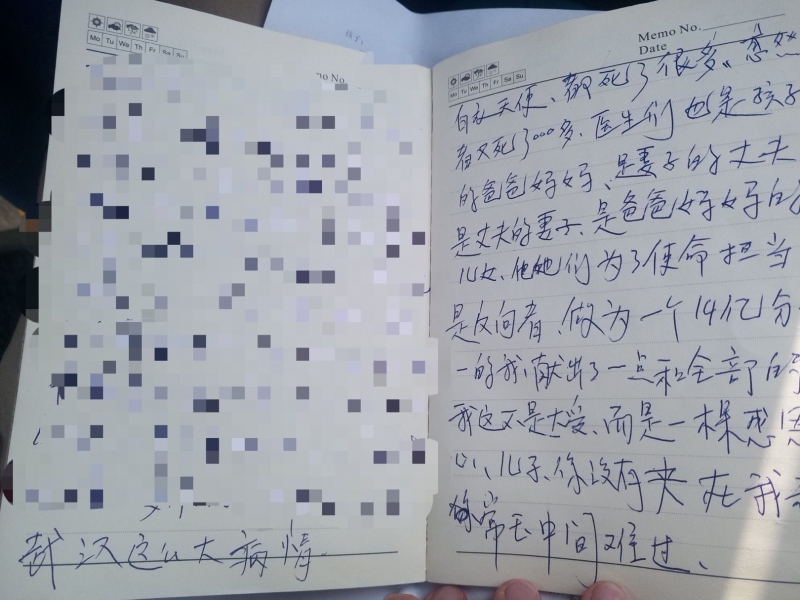 Mo Tu We Th Fr Sa Su
武汉这么大病情
Memo No.
Date
Mo Tu We Th Fr Sa Su
白衣天使、都死了很多。
者又死了000多、医生们也是孩子
的爸爸妈妈、是妻子的丈夫
是丈夫的妻子、是爸爸妈妈的
儿女、他她们为了使命担当
是反向者、做为一个14亿分
一的我、献出了一点和全部的
我这不是大爱、而是一棵感恩
心、儿子、你没有夹在我
常玉中间难过、